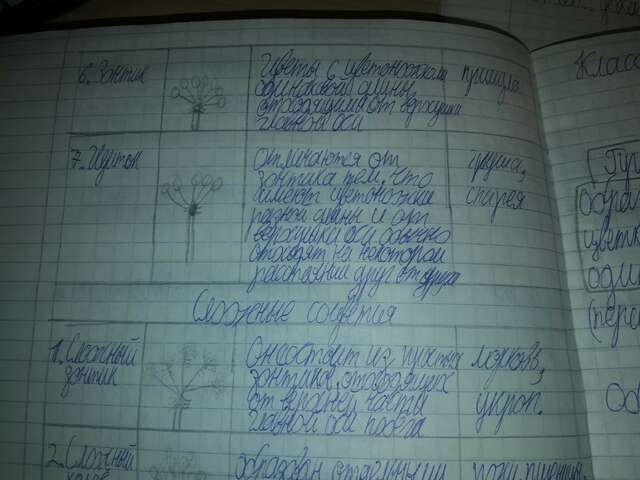 6. Зонтик
Цветы с цветоножками
одинаковой длины,
отходящими от верхушки
главной оси
примула
7. Щиток
Отличаются от
зонтика тем, что
имеют цветоножки
разной длины и от
верхушки оси обычно
отходят на некотором
расстоянии друг от друга
груша,
спирея
Сложные соцветия
1. Сложный
зонтик
Он состоит из простых
зонтика, отходящих
от верхней части
главной оси побега
морковь,
укроп.
2. Сложный
колос
образован отдельными
рожь, пшеница,
Класс
цветк
один
(пере